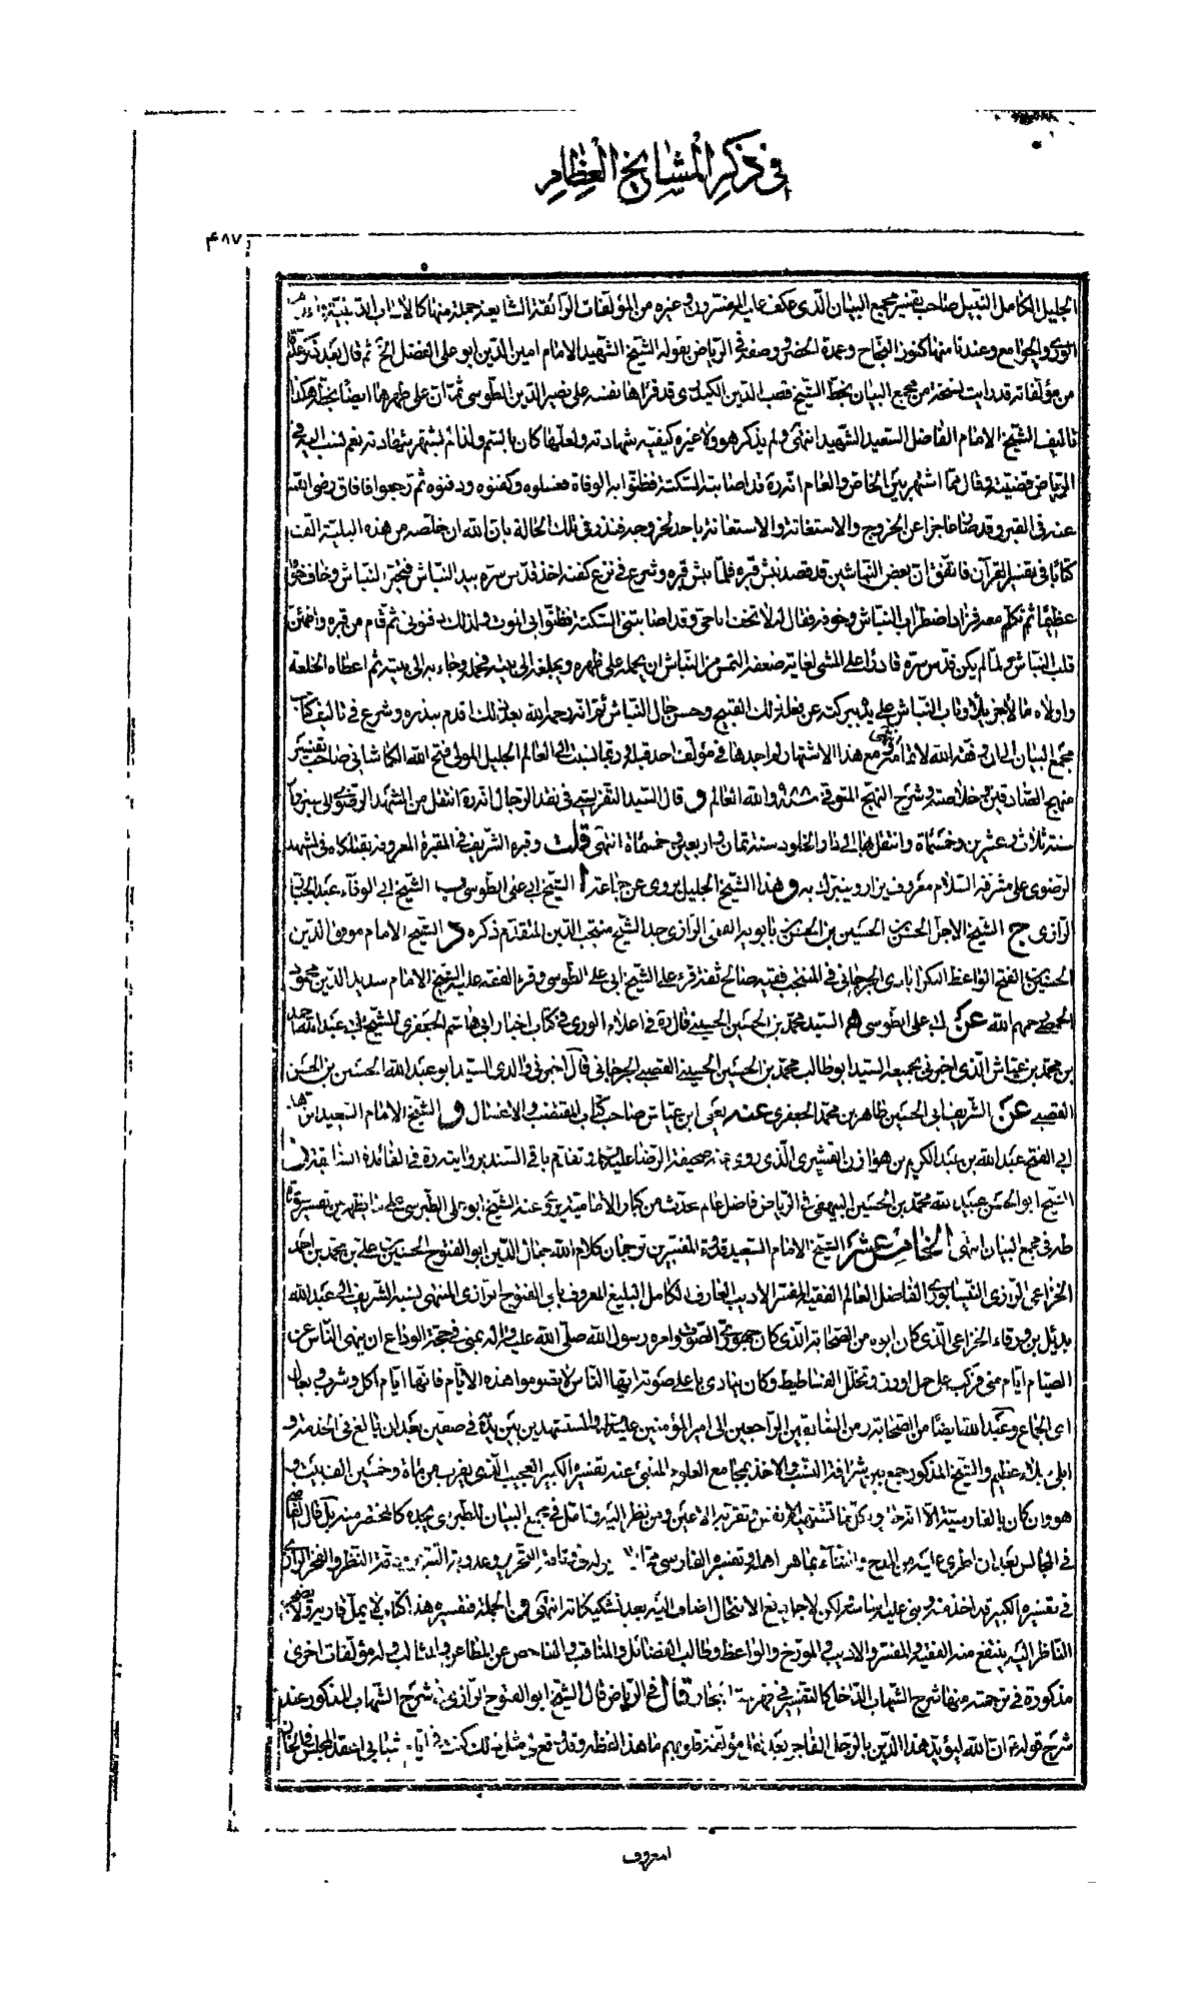 في ذكر المشايخ العظام
۴۸۷
الجليل الكامل النبيل صاحب تفسير مجمع البيان الذى عكف عليه المفسرون وغيره من المؤلفات الرائقة الشايعة جملة منها كالآداب الدينية
الورى والجوامع وعندنا منها كنوز النجاح وعدة الحضر وصفه في الرياض بقوله الشيخ الشهيد الامام امين الدين ابو علي الفضل الخ ثم قال بعد ذكر
من مؤلفاته قد رايت نسخة من مجمع البيان بخط الشيخ قطب الدين الكيدرى قد قراها نفسه على نصير الدين الطوسى ثم ان على ظهرها ايضا بخطه هكذا
تاليف الشيخ الامام الفاضل السعيد الشهيد انتهى ولم يذكر هو ولا غيره كيفية شهادته ولعلها كان بالسم ولذا لم يشتهر شهادته نعم نسب اليه في
الرياض قضية وقال مما اشتهر بين الخاص والعام انه ره قد اصابته السكتة فظنوا به الوفاة فغسلوه وكفنوه ودفنوه ثم رجعوا فافاق رضى الله
عنه في القبر وقد صار عاجزا عن الخروج والاستغاثة والاستعانة باحد لخروجه فنذر في تلك الحالة بان الله ان خلصه من هذه البلية الف
كتابا في تفسير القرآن فاتفق ان بعض النباشين قد قصد نبش قبره فلما نبش قبره وشرع في نزع كفنه اخذ قدس سره بيد النباش فتحير النباش وخاف خوفا
عظيما ثم تكلم معه فزاد اضطراب النباش وخوفه فقال له لا تخف انا حى وقد اصابتنى السكتة فظنوا بى الموت ولذلك دفنونى ثم قام من قبره واطمئن
قلب النباش ولما لم يكن قدس سره قادرا على المشى لغاية ضعفه التمس من النباش ان يحمله على ظهره ويبلغه الى بيته فحمله وجاء به الى بيته ثم اعطاه الخلعة
واولاه مالا جزيلا وتاب النباش على يده ببركته عن فعله ذلك القبيح وحسن حال النباش ثم انه رحمه الله بعد ذلك اقدم بنذره وشرع في تاليف كتاب
مجمع البيان الى ان وفقه الله لاتمامه انتهى ومع هذا الاشتهار لم اجدها في مؤلف احد قبله وربما نسبت الى العالم الجليل المولى فتح الله الكاشانى صاحب تفسير
منهج الصادقين وخلاصته وشرح النهج المتوفى سنة والله العالم وقال السيد التفريشى في نقد الرجال انه ره انتقل من المشهد الرضوى الى سبزوار
سنة ثلاث وعشرين وخمسمأة وانتقل بها الى دار الخلود سنة ثمان واربعين وخمسمأة انتهى قلت وقبره الشريف في المقبرة المعروفة بقتلكاه في المشهد
الرضوى على مشرفه السلام معروف يزار ويتبرك به وهذا الشيخ الجليل يروى عن جماعة ا الشيخ ابى على الطوسى ب الشيخ ابى الوفاء عبد الجبار
الرازى ج الشيخ الاجل الحسن بن الحسين بن الحسن بن بابويه القمى الرازى جد الشيخ منتجب الدين المتقدم ذكره د الشيخ الامام موفق الدين
الحسين بن الفتح الواعظ البكرابادى الجرجانى في المنتجب فقيه صالح ثقة قرء على الشيخ ابى على الطوسى وقرء الفقه عليه الشيخ الامام سديد الدين محمود
الحمصى رحمهم الله عن ابى على الطوسى ه السيد محمد بن الحسين الحسينى قال ره في اعلام الورى في كتاب اخبار ابى هاشم الجعفرى للشيخ ابى عبد الله احمد
بن محمد بن عياش الذى اخبرنى بجميعه السيد ابو طالب محمد بن الحسين الحسينى القصبى الجرجانى قال اخبرنى والدى السيد ابو عبد الله الحسين بن الحسن
القصبى عن الشريف ابى الحسين طاهر بن محمد الجعفرى عنه يعنى ابن عياش صاحب كتاب المقتضب والاغسال و الشيخ الامام السعيد
ابى الفتح عبد الله بن عبد الكريم بن هوازن القشيرى الذى روى عنه صحيفة الرضا عليه السلام وتقدم باقى السند برواية ره في الفائدة
الشيخ ابو الحسن عبيد الله محمد بن الحسين البيهقى في الرياض فاضل عالم محدث من كبار الامامية يروى عنه الشيخ ابو على الطبرسى على ما يظهر من تفسير سورة
طه في مجمع البيان انتهى الخامس عشر الشيخ الامام السعيد قدوة المفسرين ترجمان كلام الله جمال الدين ابو الفتوح الحسين بن على بن محمد بن احمد
الخزاعى الرازى النيسابورى الفاضل العالم الفقيه المفسر الاديب العارف الكامل البليغ المعروف بابى الفتوح الرازى المنتهى نسبه الشريف الى عبد الله
بديل بن ورقاء الخزاعى الذى كان ابوه من الصحابة الذى كان جهورى الصوت وامره رسول الله صلى الله عليه واله بمنى في حجة الوداع ان ينهى الناس عن
الصيام ايام منى فركب على جمل اورق وتخلل الفساطيط وكان ينادى باعلى صوته ايها الناس لا تصوموا هذه الايام فانها ايام اكل وشرب وبعال
اى الجماع وعبد الله ايضا من الصحابة ومن السابقين الراجعين الى امير المؤمنين عليه السلام والمستشهدين بين يديه في صفين بعد ان بالغ في الخدمة و
ابلى بلاء عظيم والشيخ المذكور جمع بين شرافة النسب والاخذ بمجامع العلوم المنبئ عنه تفسيره الكبير العجيب الذى يقرب من مأة وخمسين الف بيت و
هو وان كان بالفارسية الا انه حاو لكل ما تشتهيه الانفس وتقر به الاعين ومن نظر اليه وتامل في مجمع البيان للطبرسى يجده كالمختصر منه بل قال القاضى
في المجالس بعد ان اطرى عليه من المدح والثناء بما هو اهله وتفسيره الفارسى وعذوبة ودقة النظر والفخر الرازى
في تفسيره الكبير قد اخذ منه وبنى عليه اساسه ولكن لاجل دفع الانتحال اضاف اليه بعض تشكيكاته انتهى وفي الجملة فتفسيره هذا كتاب لا يمل قاريه ولا
الناظر اليه ينتفع منه الفقيه والمفسر والاديب والمورخ والواعظ وطالب الفضائل والمناقب والفاحص عن المطاعن والمثالب وله مؤلفات اخرى
مذكورة في ترجمته منها شرح الشهاب الداخل كالتفسير في فهرست البحار قال في الرياض قال الشيخ ابو الفتوح الرازى في شرح الشهاب المذكور عند
شرح قوله ان الله ليؤيد هذا الدين بالرجل الفاجر بعد مؤلفة قلوبهم ما هذا لفظه وقد وقع لى مثل ذلك كنت في ايام شبابى اعقد المجلس في الخان
المعروف